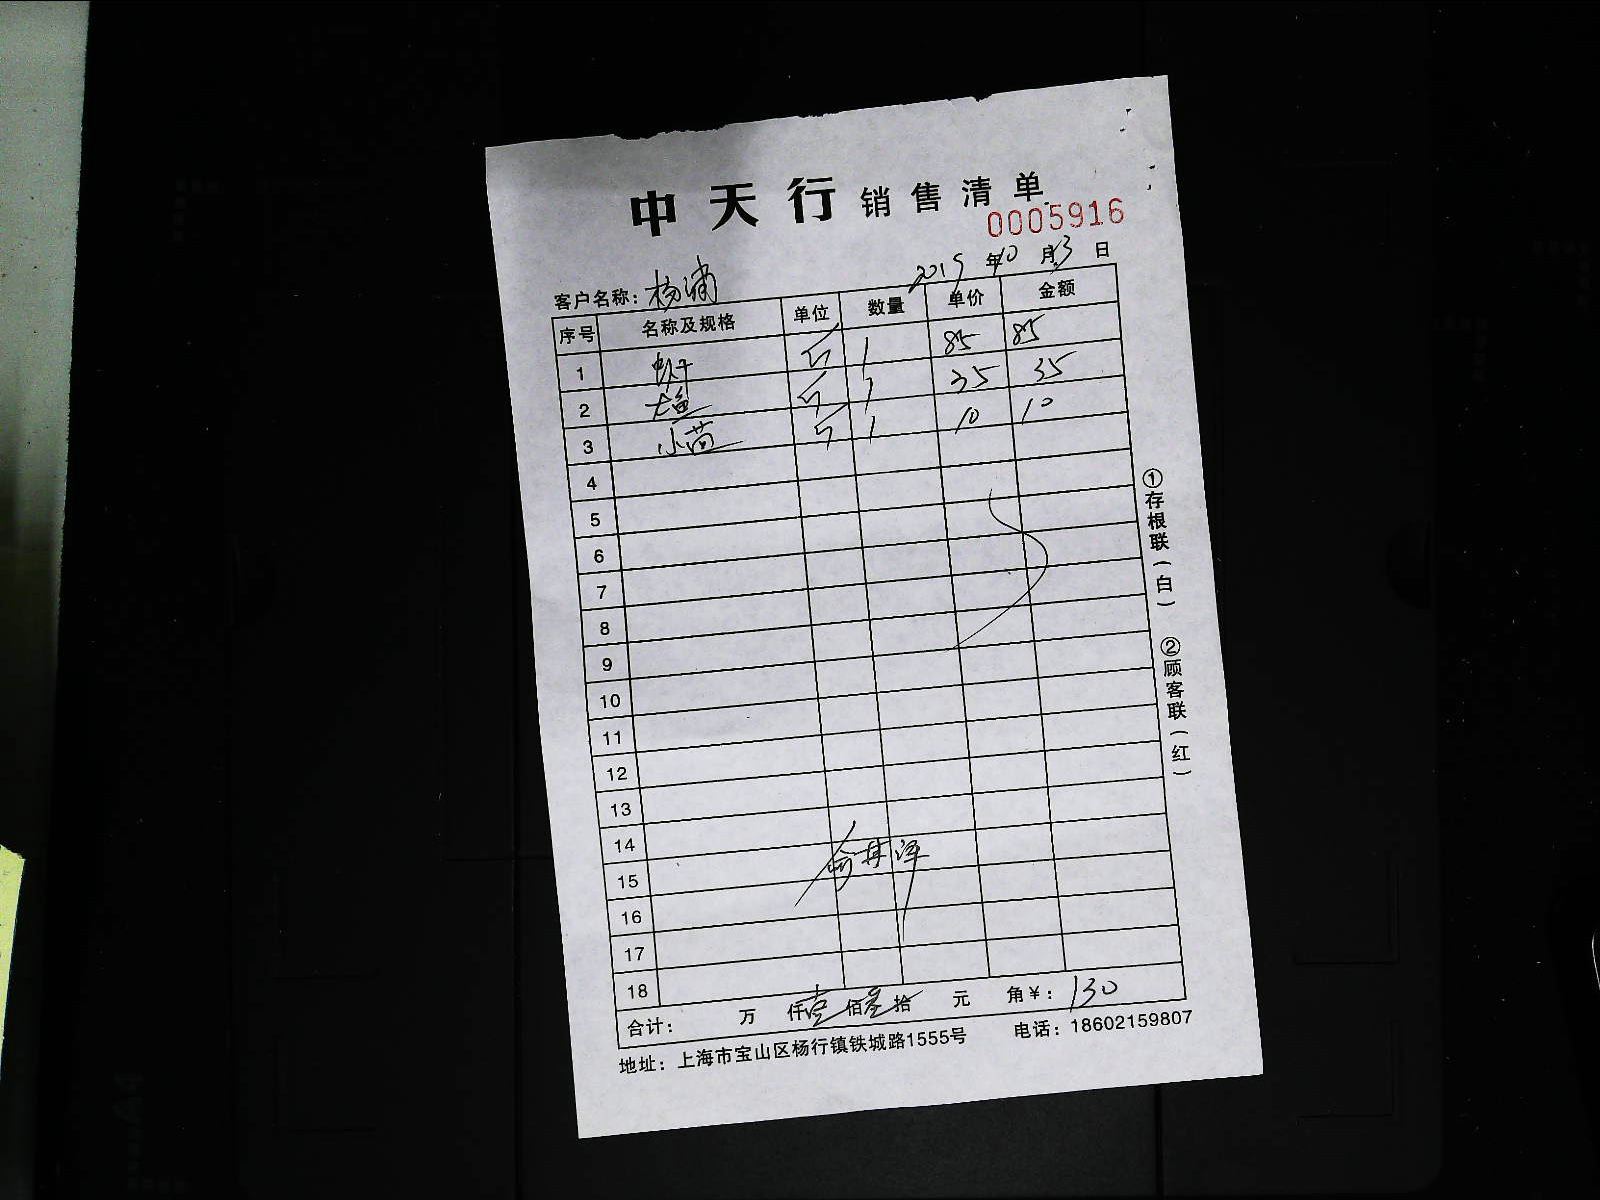 中天行 销售清单
0005916
客户名称：杨浦 2019 年 10 月 13 日
序号 名称及规格 单位 数量 单价 金额
1 虾干 斤 1 85 85
2 斤 1 35 35
3 小黄 斤 1 10 10
4
5
6
7
8
9
10
11
12
13
14
15
16
17
18
合计： 万 仟壹佰叁拾 元 角¥：130
地址：上海市宝山区杨行镇铁城路1555号 电话：18602159807
①存根联（白） ②顾客联（红）